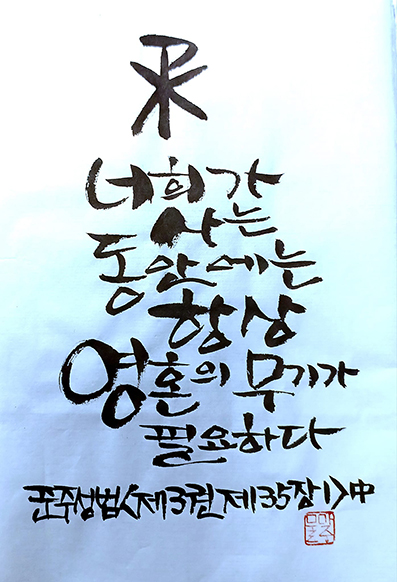 너희가
사는
동안에는
항상
영혼의 무기가
필요하다
준주성범<제3권 제35장1>中